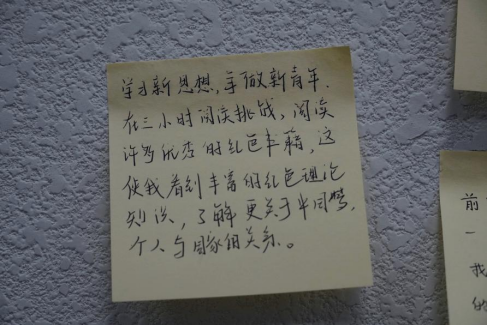 学习新思想,争做新青年.
在三小时阅读挑战,阅读
许多优秀的红色书籍,这
使我看到丰富的红色理论
知识,了解更关于中国梦,
个人与国家的关系。
前
一
我
的